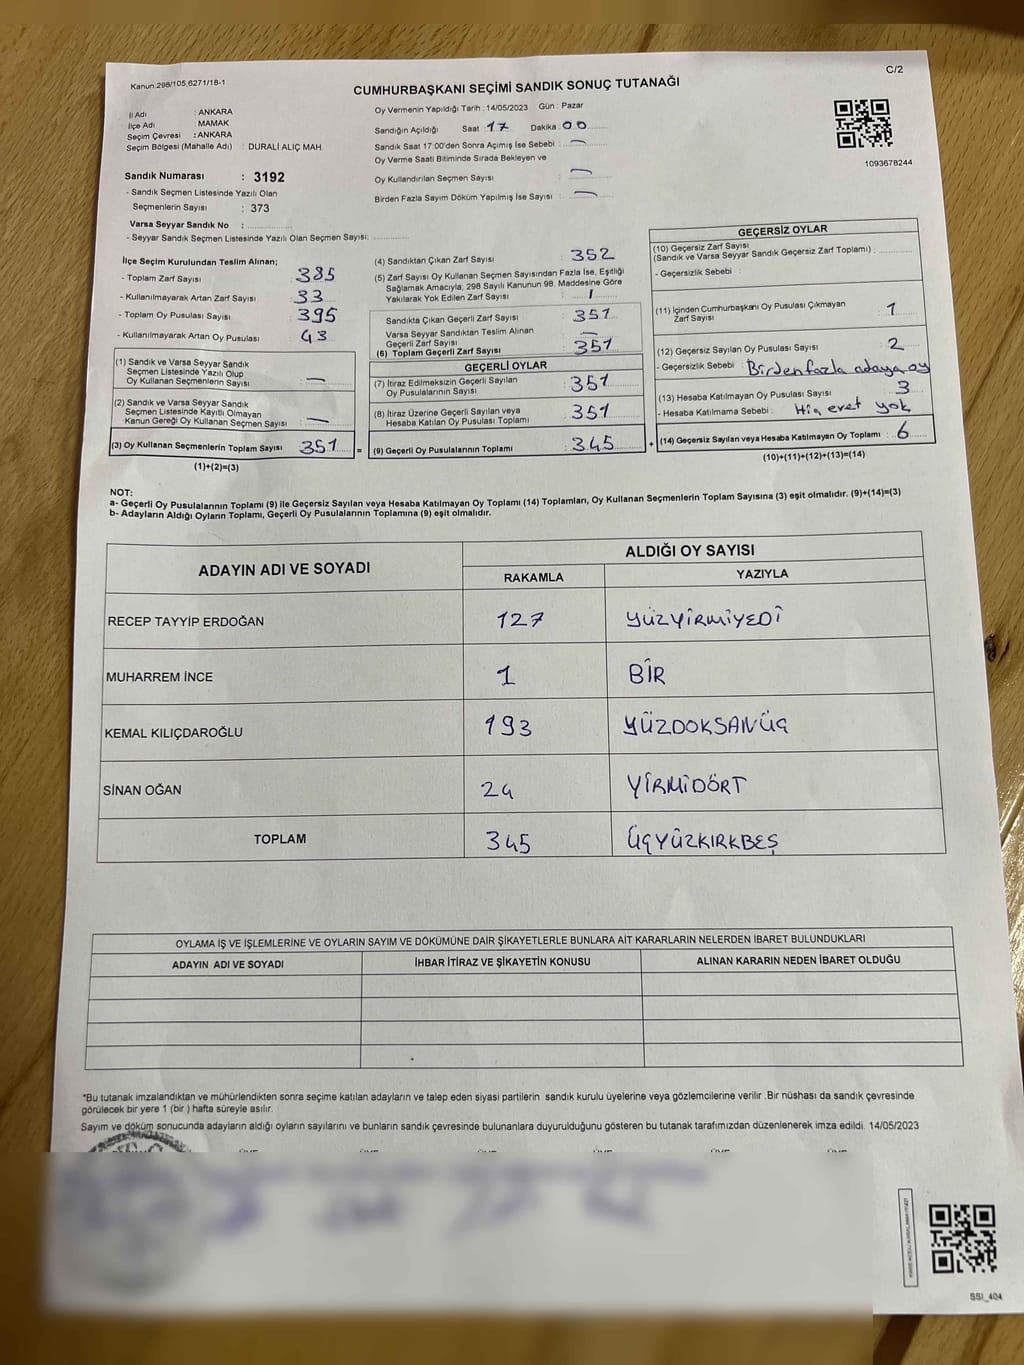 Kanun:298/105,6271/18-1
C/2
CUMHURBAŞKANI SEÇİMİ SANDIK SONUÇ TUTANAĞI
İl Adı : ANKARA
İlçe Adı : MAMAK
Seçim Çevresi : ANKARA
Seçim Bölgesi (Mahalle Adı) : DURALİ ALIÇ MAH.
Oy Vermenin Yapıldığı Tarih : 14/05/2023 Gün : Pazar
Sandığın Açıldığı Saat 17 Dakika 00
Sandık Saat 17:00'den Sonra Açımış İse Sebebi : —
Oy Verme Saati Bitiminde Sırada Bekleyen ve
Oy Kullandırılan Seçmen Sayısı : —
Birden Fazla Sayım Döküm Yapılmış İse Sayısı : —
1093678244
Sandık Numarası : 3192
- Sandık Seçmen Listesinde Yazılı Olan
Seçmenlerin Sayısı : 373
Varsa Seyyar Sandık No :
- Seyyar Sandık Seçmen Listesinde Yazılı Olan Seçmen Sayısı:
İlçe Seçim Kurulundan Teslim Alınan;
- Toplam Zarf Sayısı : 385
- Kullanılmayarak Artan Zarf Sayısı : 33
- Toplam Oy Pusulası Sayısı : 395
- Kullanılmayarak Artan Oy Pusulası : 43
(1) Sandık ve Varsa Seyyar Sandık
Seçmen Listesinde Yazılı Olup
Oy Kullanan Seçmenlerin Sayısı : —
(2) Sandık ve Varsa Seyyar Sandık
Seçmen Listesinde Kayıtlı Olmayan
Kanun Gereği Oy Kullanan Seçmen Sayısı : —
(3) Oy Kullanan Seçmenlerin Toplam Sayısı : 351 =
(1)+(2)=(3)
(4) Sandıktan Çıkan Zarf Sayısı : 352
(5) Zarf Sayısı Oy Kullanan Seçmen Sayısından Fazla İse, Eşitliği
Sağlamak Amacıyla, 298 Sayılı Kanunun 98. Maddesine Göre
Yakılarak Yok Edilen Zarf Sayısı : 1
Sandıkta Çıkan Geçerli Zarf Sayısı : 351
Varsa Seyyar Sandıktan Teslim Alınan
Geçerli Zarf Sayısı : —
(6) Toplam Geçerli Zarf Sayısı : 351
GEÇERLİ OYLAR
(7) İtiraz Edilmeksizin Geçerli Sayılan
Oy Pusulalarının Sayısı : 351
(8) İtiraz Üzerine Geçerli Sayılan veya
Hesaba Katılan Oy Pusulası Toplamı : 351
(9) Geçerli Oy Pusulalarının Toplamı : 345 +
GEÇERSİZ OYLAR
(10) Geçersiz Zarf Sayısı
(Sandık ve Varsa Seyyar Sandık Geçersiz Zarf Toplamı) :
- Geçersizlik Sebebi :
(11) İçinden Cumhurbaşkanı Oy Pusulası Çıkmayan
Zarf Sayısı : 1
(12) Geçersiz Sayılan Oy Pusulası Sayısı : 2
- Geçersizlik Sebebi : Birden fazla adaya oy
(13) Hesaba Katılmayan Oy Pusulası Sayısı : 3
- Hesaba Katılmama Sebebi : Hiç evet yok
(14) Geçersiz Sayılan veya Hesaba Katılmayan Oy Toplamı : 6
(10)+(11)+(12)+(13)=(14)
NOT:
a- Geçerli Oy Pusulalarının Toplamı (9) ile Geçersiz Sayılan veya Hesaba Katılmayan Oy Toplamı (14) Toplamları, Oy Kullanan Seçmenlerin Toplam Sayısına (3) eşit olmalıdır. (9)+(14)=(3)
b- Adayların Aldığı Oyların Toplamı, Geçerli Oy Pusulalarının Toplamına (9) eşit olmalıdır.
ADAYIN ADI VE SOYADI
ALDIĞI OY SAYISI
RAKAMLA YAZIYLA
RECEP TAYYİP ERDOĞAN 127 YÜZYİRMİYEDİ
MUHARREM İNCE 1 BİR
KEMAL KILIÇDAROĞLU 193 YÜZDOKSANÜÇ
SİNAN OĞAN 24 YİRMİDÖRT
TOPLAM 345 ÜÇYÜZKIRKBEŞ
OYLAMA İŞ VE İŞLEMLERİNE VE OYLARIN SAYIM VE DÖKÜMÜNE DAİR ŞİKAYETLERLE BUNLARA AİT KARARLARIN NELERDEN İBARET BULUNDUKLARI
ADAYIN ADI VE SOYADI İHBAR İTİRAZ VE ŞİKAYETİN KONUSU ALINAN KARARIN NEDEN İBARET OLDUĞU
*Bu tutanak imzalandıktan ve mühürlendikten sonra seçime katılan adayların ve talep eden siyasi partilerin sandık kurulu üyelerine veya gözlemcilerine verilir .Bir nüshası da sandık çevresinde
görülecek bir yere 1 (bir ) hafta süreyle asılır.
Sayım ve döküm sonucunda adayların aldığı oyların sayılarını ve bunların sandık çevresinde bulunanlara duyurulduğunu gösteren bu tutanak tarafımızdan düzenlenerek imza edildi. 14/05/2023
SSI_404